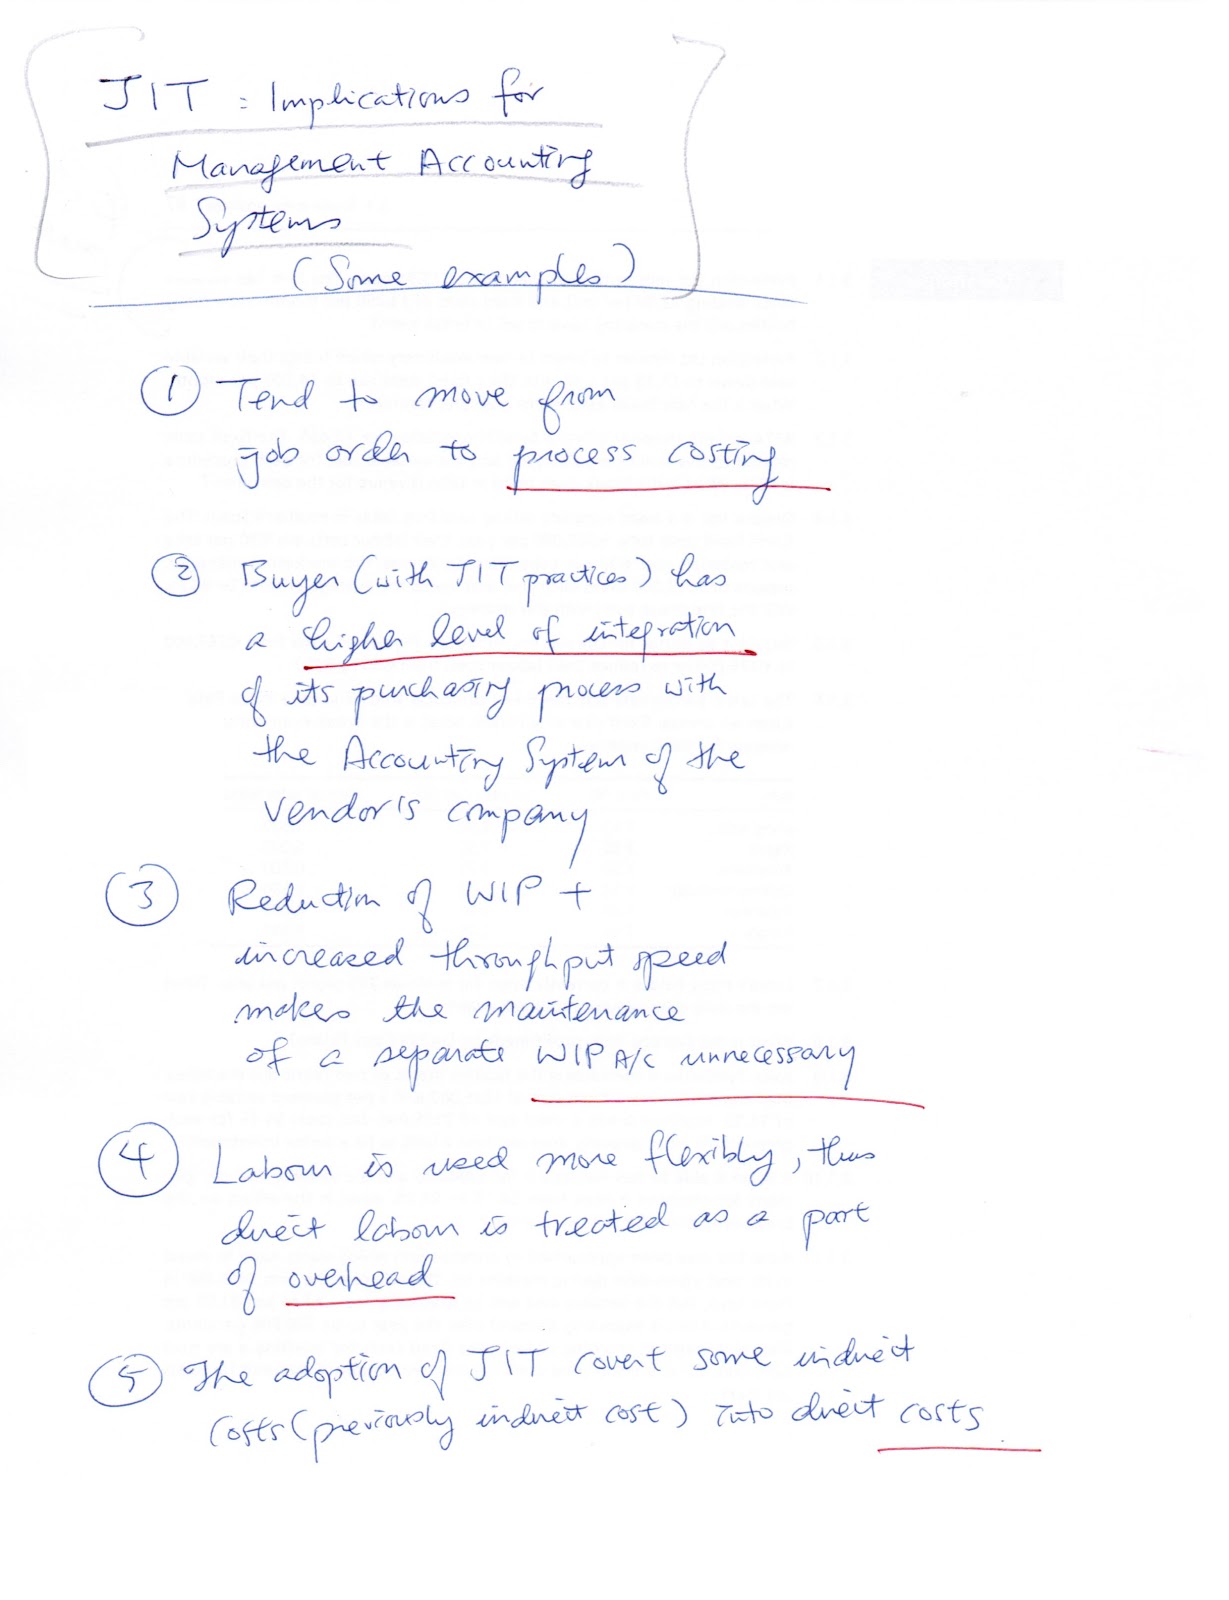 JIT : Implications for
Management Accounting
Systems
(Some examples)
① Tend to move from
job order to process costing
② Buyer (with JIT practices) has
a higher level of integration
of its purchasing process with
the Accounting System of the
vendor's company
③ Reduction of WIP +
increased throughput speed
makes the maintenance
of a separate WIP A/C unnecessary
④ Labour is used more flexibly, thus
direct labour is treated as a part
of overhead
⑤ The adoption of JIT covert some indirect
costs (previously indirect cost) into direct costs